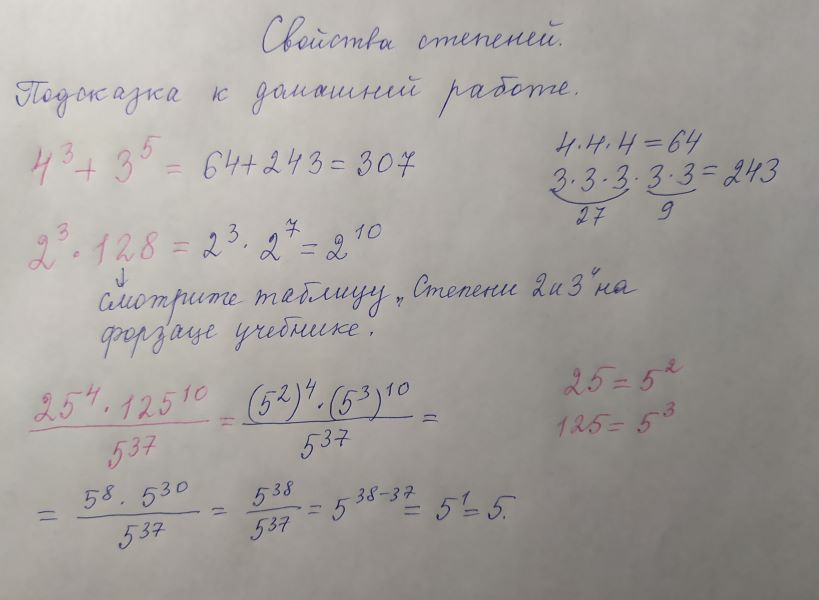 Свойства степеней.
Подсказка к домашней работе.
4³ + 3⁵ = 64+243 = 307
4·4·4 = 64
3·3·3·3·3 = 243
27 9
2³ · 128 = 2³ · 2⁷ = 2¹⁰
↓
смотрите таблицу „Степени 2 и 3" на
форзаце учебнике.
25⁴ · 125¹⁰ / 5³⁷ = (5²)⁴ · (5³)¹⁰ / 5³⁷ =
25 = 5²
125 = 5³
= 5⁸ · 5³⁰ / 5³⁷ = 5³⁸ / 5³⁷ = 5³⁸⁻³⁷ = 5¹ = 5.